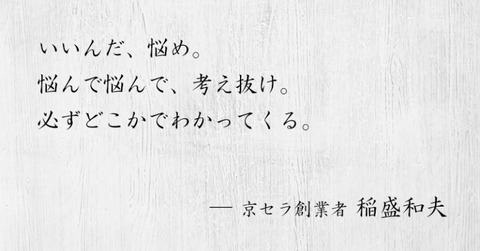 いいんだ、悩め。
悩んで悩んで、考え抜け。
必ずどこかでわかってくる。
― 京セラ創業者 稲盛和夫